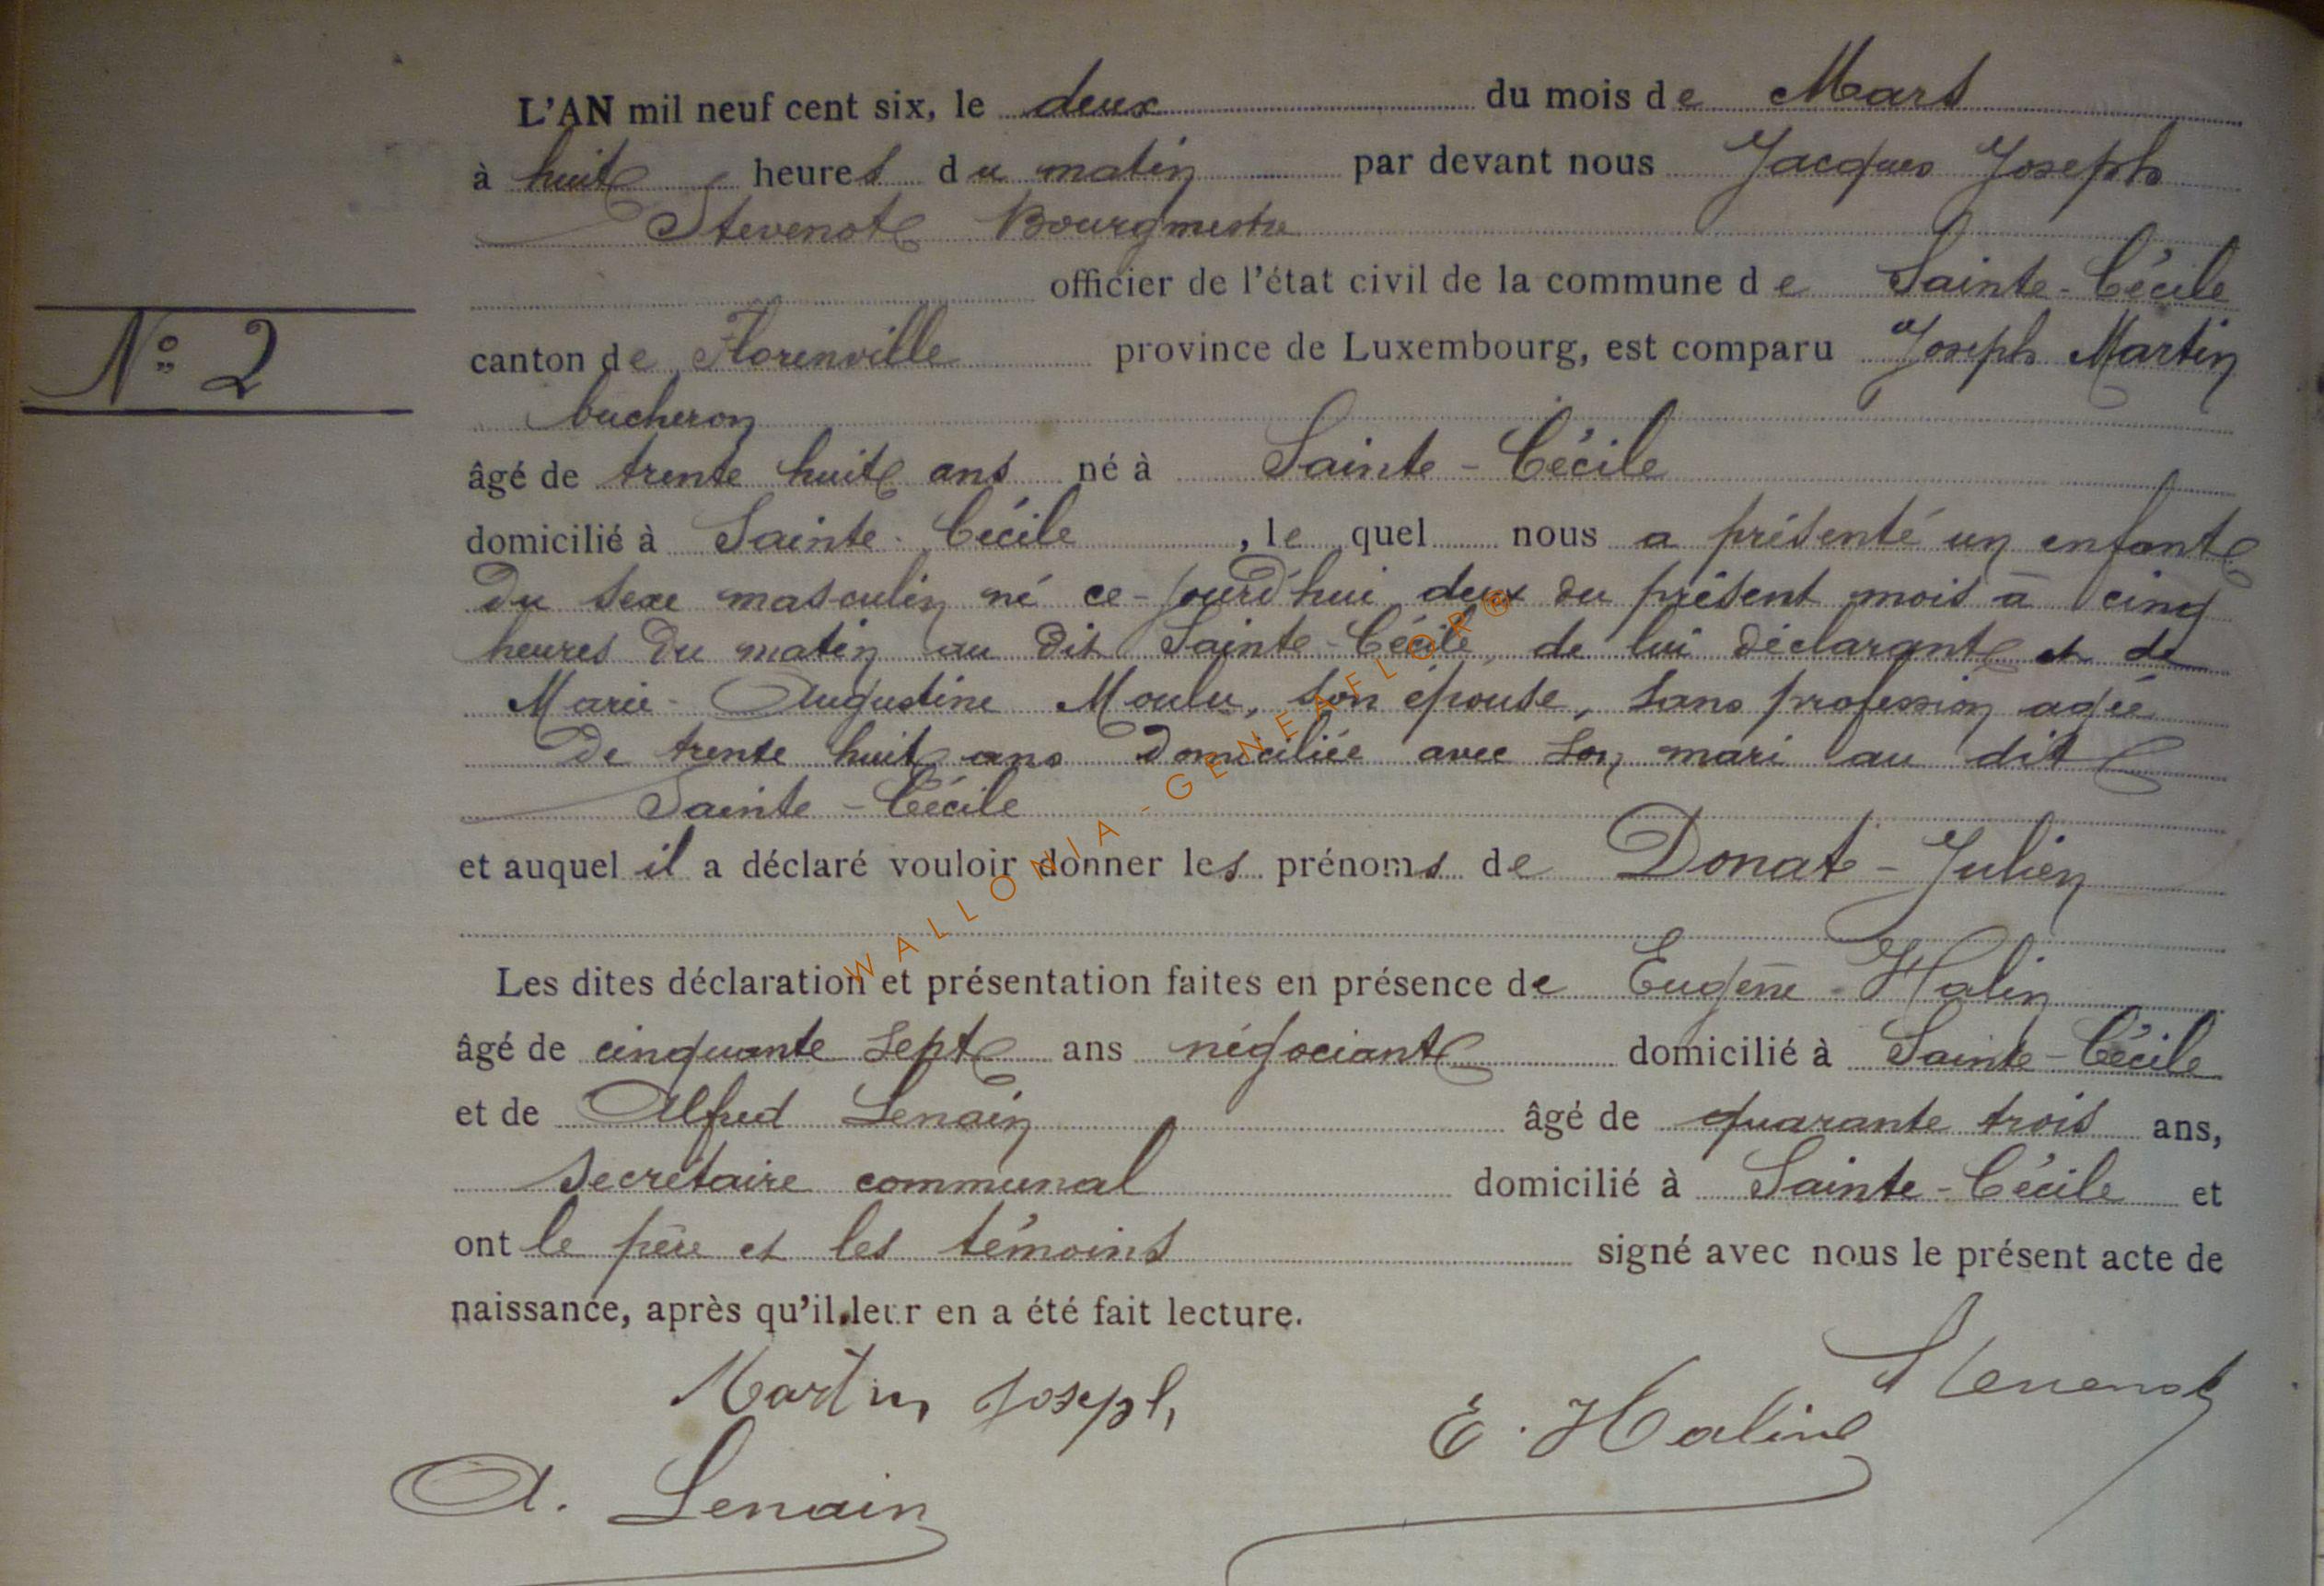 L'AN mil neuf cent six, le deux du mois de Mars
à huit heures du matin par devant nous Jacques Joseph
Stevenot Bourgmestre
officier de l'état civil de la commune de Sainte-Cécile
N° 2
canton de Florenville province de Luxembourg, est comparu Joseph Martin
bucheron
âgé de trente huit ans né à Sainte-Cécile
domicilié à Sainte-Cécile, le quel nous a présenté un enfant
du sexe masculin né ce-jourd'hui deux du présent mois à cinq
heures du matin au dit Sainte-Cécile, de lui déclarant et de
Marie-Augustine Moulu, son épouse, sans profession agée
de trente huit ans domiciliée avec son mari au dit
Sainte-Cécile
et auquel il a déclaré vouloir donner les prénoms de Donat-Julien
Les dites déclaration et présentation faites en présence de Eugène Halin
âgé de cinquante sept ans négociant domicilié à Sainte-Cécile
et de Alfred Lenain âgé de quarante trois ans,
secrétaire communal domicilié à Sainte-Cécile et
ont le père et les témoins signé avec nous le présent acte de
naissance, après qu'il leur en a été fait lecture.
Martin Joseph
Stevenot
E. Halin
A. Lenain
WALLONIA - GENEAFLOR®